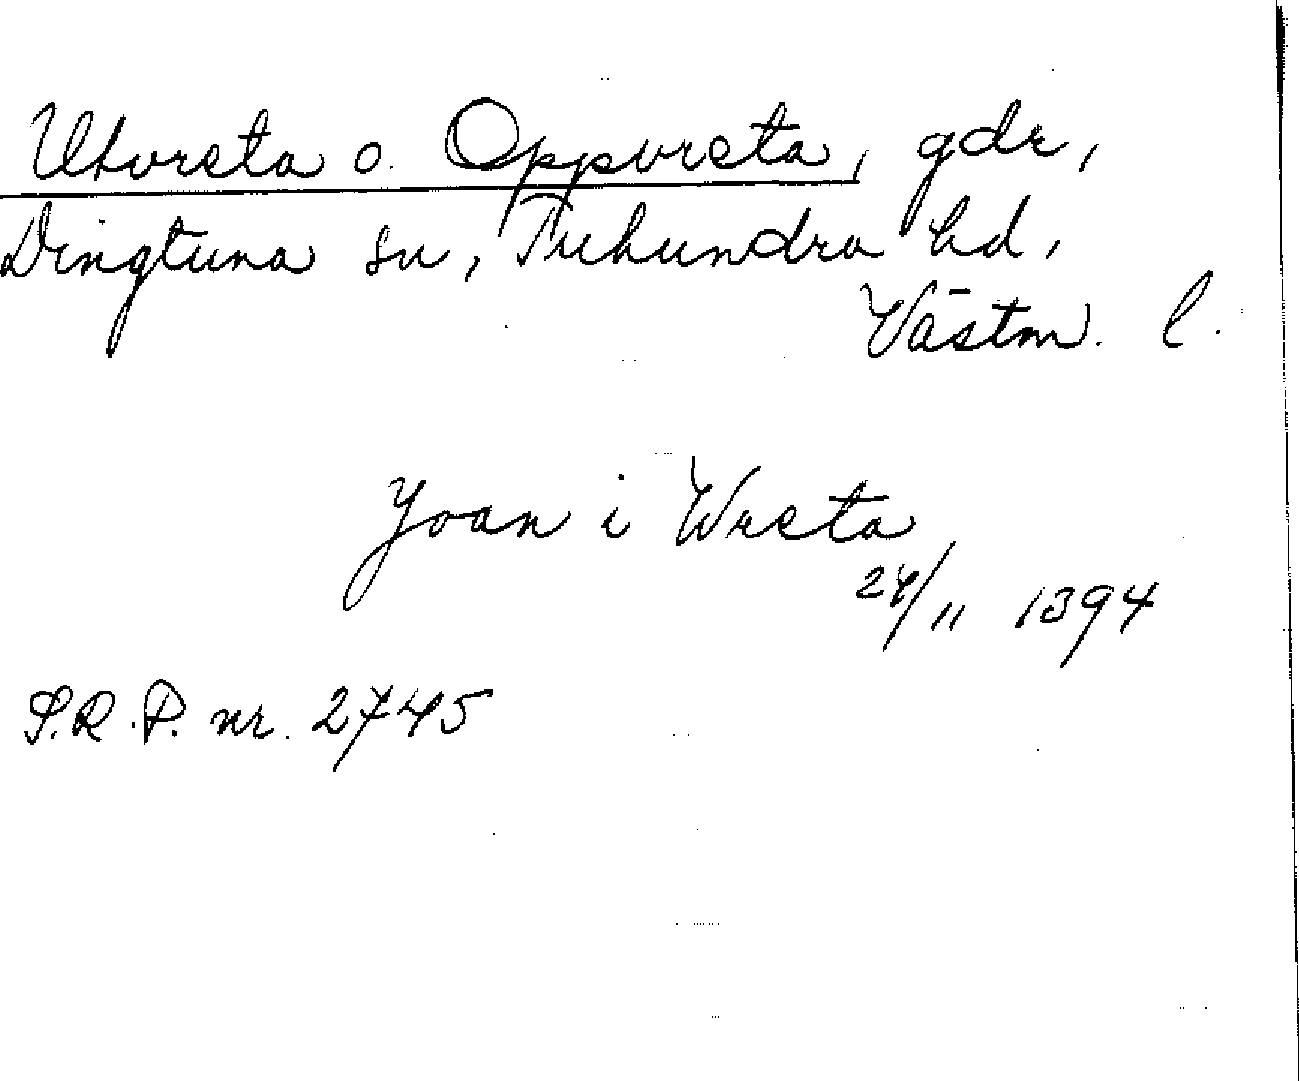 Utvreta o. Oppvreta, gdr,
Dingtuna sn, Tuhundra hd,
Västm. l.
Joan i Wreta
24/11 1394
S.R.P. nr. 2745